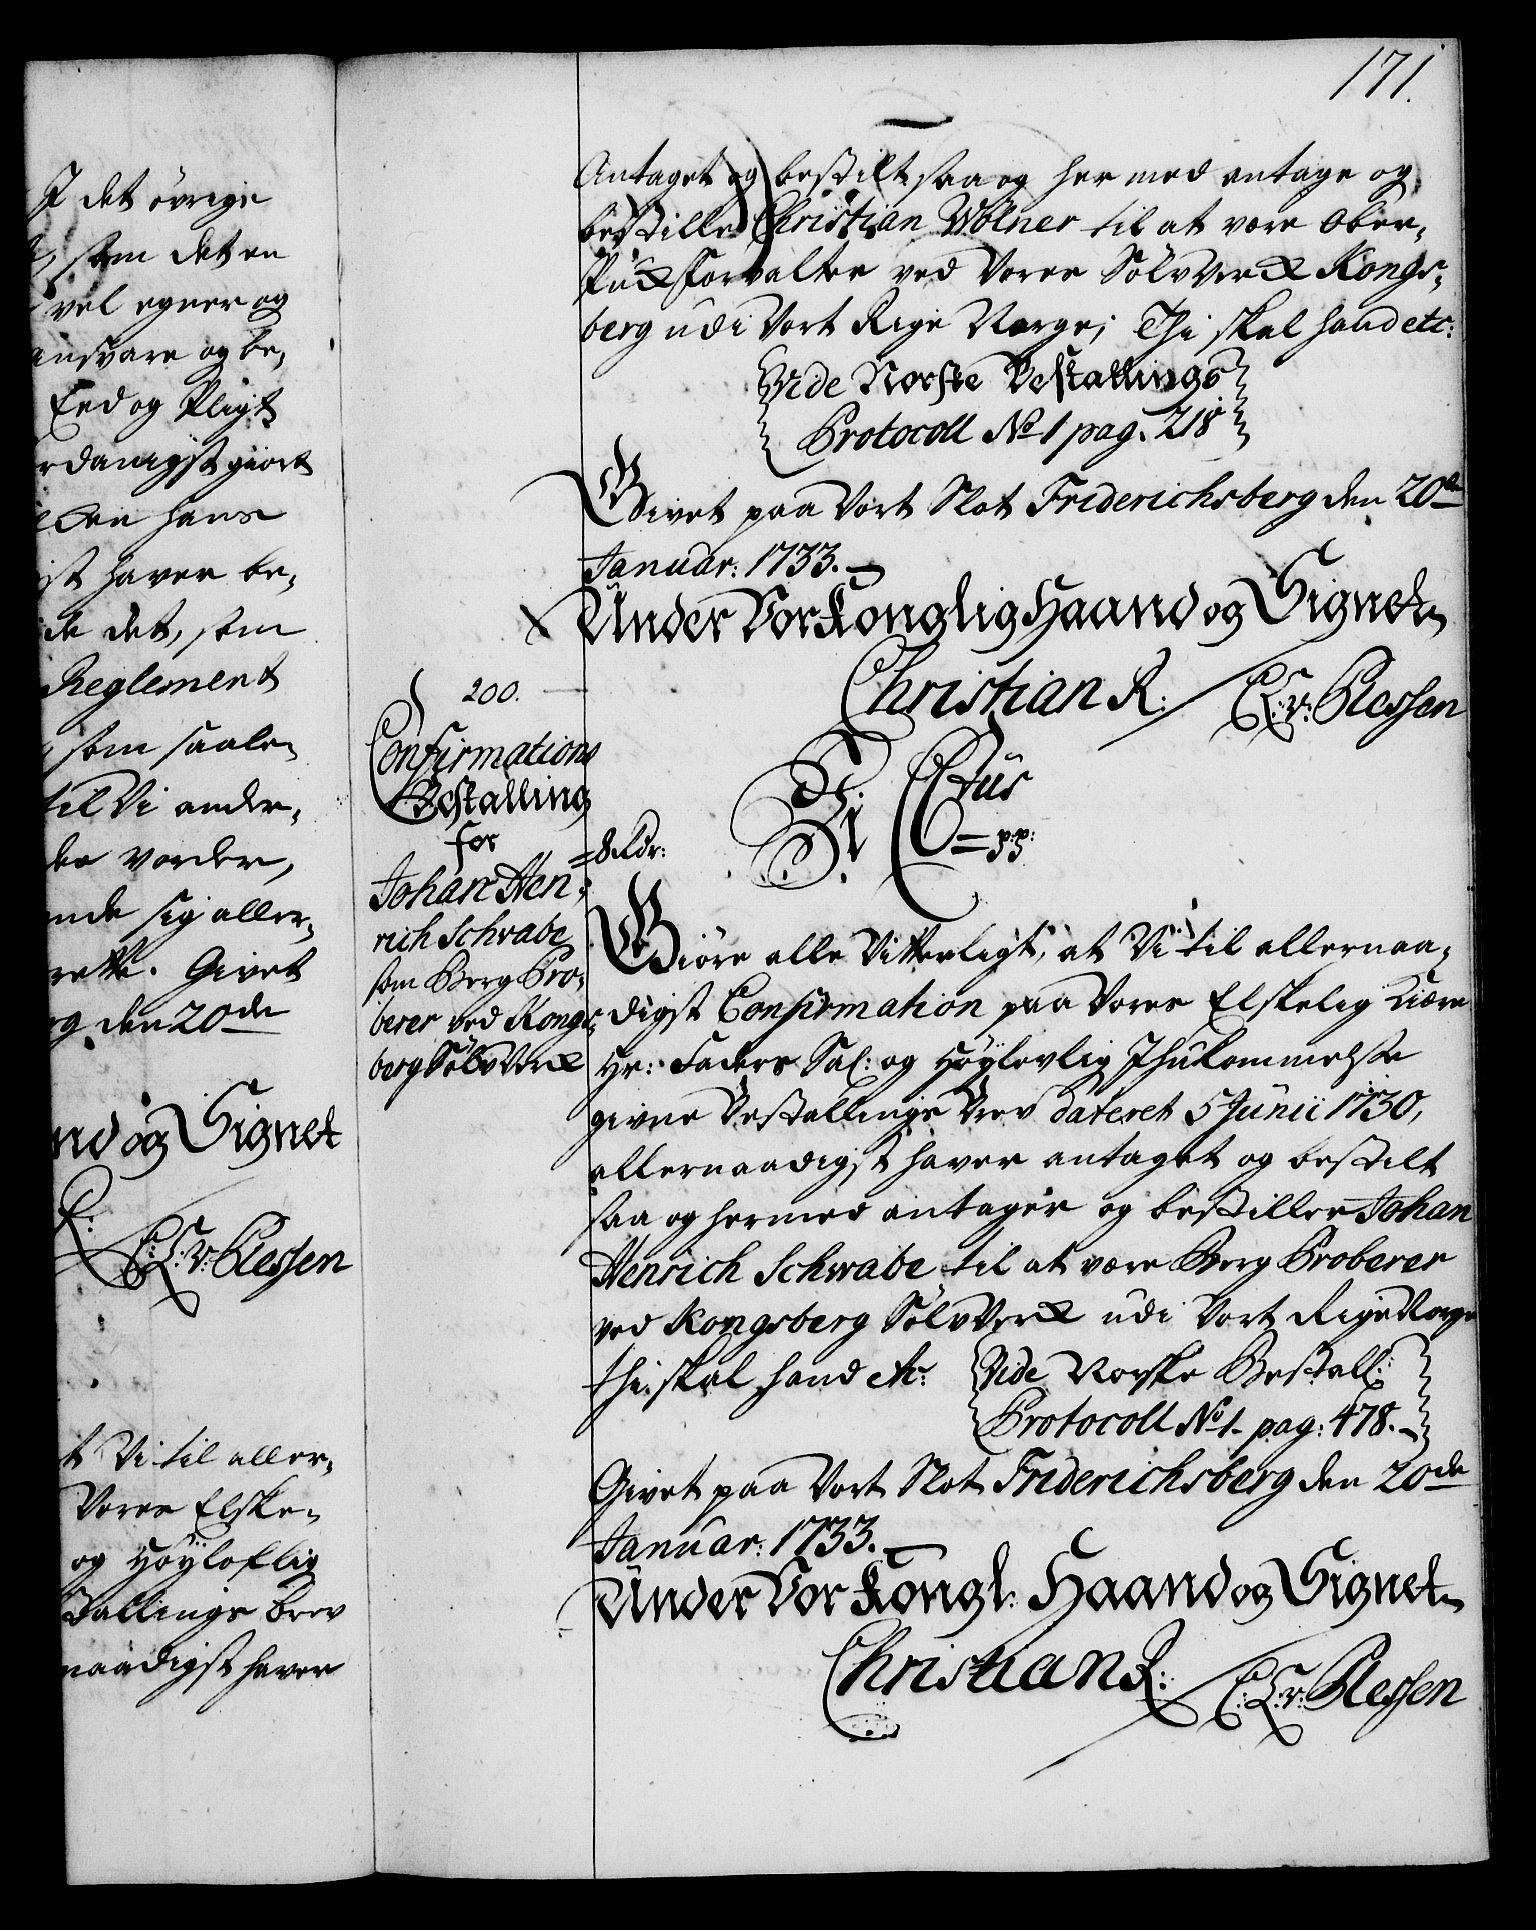 171.
I det övrige
som det en
vel egner og
ansvare og be,
Eed og Pligt
rdanigst giort
hans
ist haver be,
de det, som
Reglement
som saale,
til Vi ander,
vorder,
nde sig aller,
rette. Givet
rg den 20de
nd og Signet
R:
C: A: v: Plessen
t Vi til aller,
Vores Elske,
og Høyloflig
stallings Brev
naadigst haver
Antaget og bestilt, saa og her med antage og
bestille Christian Wölner til at være Ober,
Puckforvalter ved Vores Sölv Verck Kongs,
berg udi Vort Rige Norge; Thi skal hand etc:
Vide Norske Bestallings
Protocoll No 1 pag. 218
Givet paa Vort Slot Friderichsberg den 20de
Januar: 1733.
Under Vor Konglig Haand og Signet
Christian R: C: A: v: Plessen
200.
Confirmations
Bestalling
for
Johan Hen,
rich Schwabe
som Berg Pro,
berer ved Kongs,
berg Sölv Verck
8 Rdr:
Vi C 6tus
p:p:
Giöre alle Vitterligt, at Vi til allernaa,
digst Confirmation paa Vores Elskelig Kiære
Hr: Faders Sal: og Høylovlig Ihukommelse
givne Bestallings Brev dateret 5 Junii 1730,
allernaadigst haver antaget og bestilt
saa og hermed antager og bestiller Johan
Henrich Schwabe til at være Berg Proberer
ved Kongsberg Sölv Verck udi Vort Rige Norge
thi skal hand etc: Vide Norske Bestall:
Protocoll No 1. pag: 478.
Givet paa Vort Slot Friderichsberg den 20de
Januar: 1733.
Under Vor Kongl: Haand og Signet
Christian R: C: A: v: Plessen